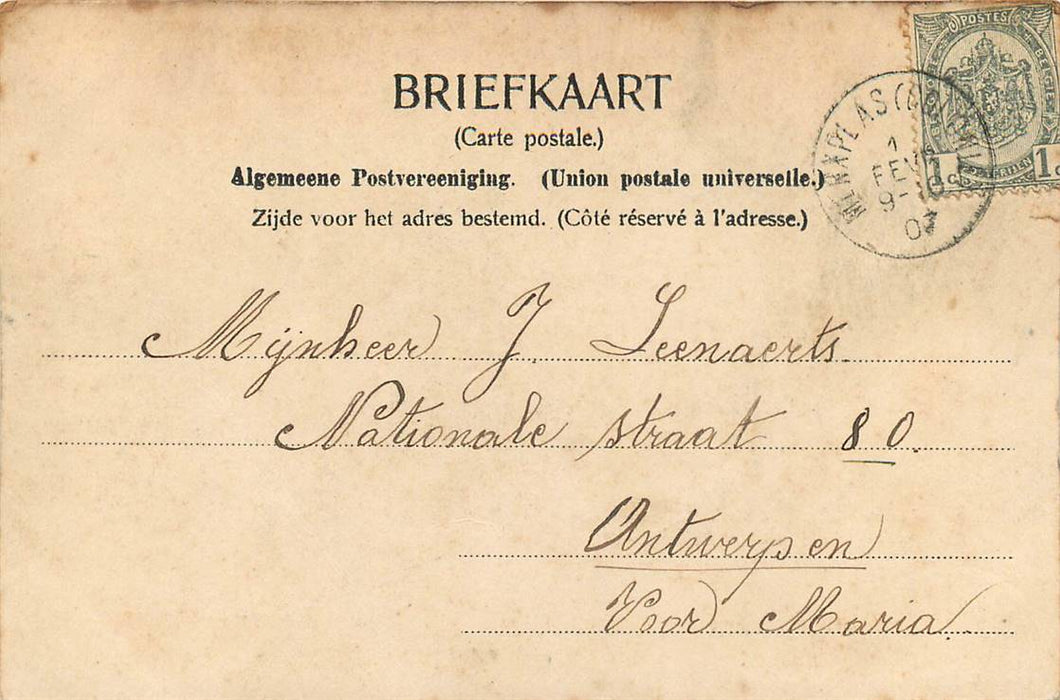 BRIEFKAART
(Carte postale.)
Algemeene Postvereeniging. (Union postale universelle.)
Zijde voor het adres bestemd. (Côté réservé à l'adresse.)
POSTES
1 c 1 c
MERXPLAS
1
FEV
9-
07
Mijnheer J. Leenaerts.
Nationale straat 80.
Antwerpen
Voor Maria.